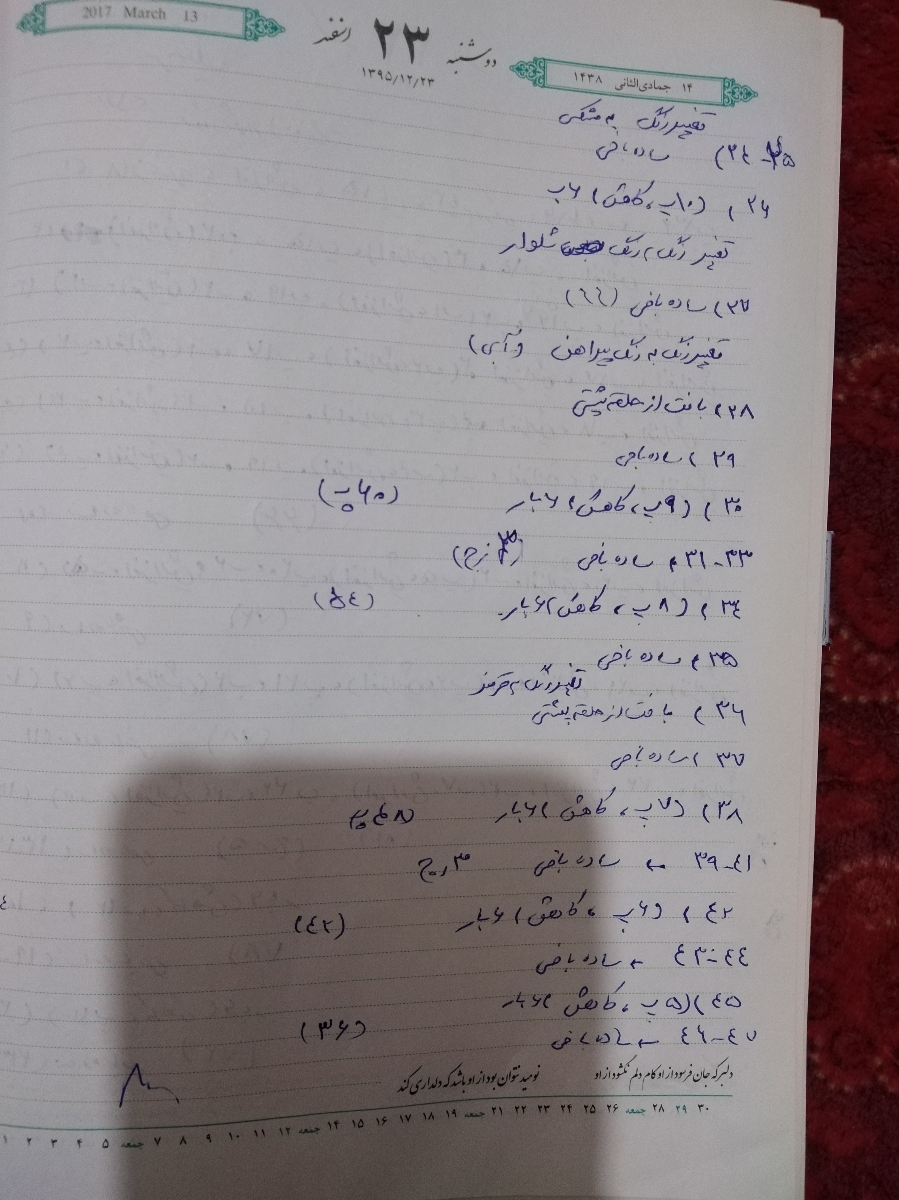 2017 March 13
دوشنبه ۲۳ اسفند
۱۳۹۵/۱۲/۲۳
۱۴ جمادی‌الثانی ۱۴۳۸
تغییر رنگ به مشکی
۲۴-۲۵) ساده بافی
۲۶) (۱۰پ، کاهش) ۶ب
تغییر رنگ، رنگ شلوار
۲۷) ساده بافی (۶۶)
تغییر رنگ به رنگ پیراهن (آبی)
۲۸) بافت از حلقه پشتی
۲۹) ساده بافی
۳۰) (۹پ، کاهش) ۶بار (۶۰پ)
۳۱-۳۳) ساده بافی (۳رج)
۳۴) (۸پ، کاهش) ۶بار (۵۴)
۳۵) ساده بافی
تغییر رنگ به قرمز
۳۶) بافت از حلقه پشتی
۳۷) ساده بافی
۳۸) (۷پ، کاهش) ۶بار ۴۸پ
۳۹-۴۱ ← ساده بافی ۳رج
۴۲) (۶پ، کاهش) ۶بار (۴۲)
۴۳-۴۴ ← ساده بافی
۴۵) (۵پ، کاهش) ۶بار
۴۶-۴۷ ← ساده بافی (۳۶)
دلبر که جان فرسود از او کام دلم نگشود از او نومید نتوان بود از او باشد که دلداری کند
۱ ۲ ۳ ۴ ۵ جمعه ۷ ۸ ۹ ۱۰ ۱۱ ۱۲ جمعه ۱۴ ۱۵ ۱۶ ۱۷ ۱۸ ۱۹ جمعه ۲۱ ۲۲ ۲۳ ۲۴ ۲۵ ۲۶ جمعه ۲۸ ۲۹ ۳۰